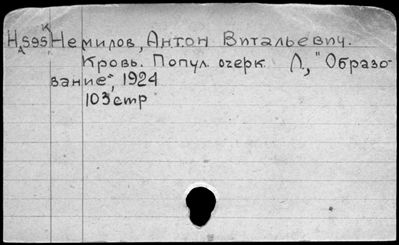 Немилов, Антон Витальевич.
Кровь. Попул. очерк Л., "Образо-
вание", 1924
103 стр